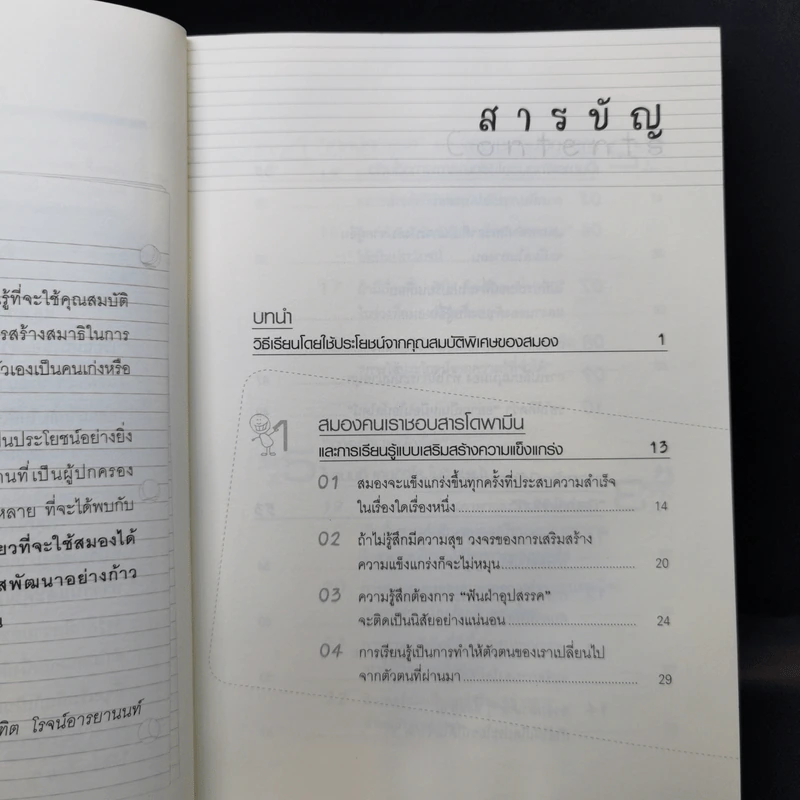 รู้ที่จะใช้คุณสมบัติ
รสร้างสมาธิในการ
ัวเองเป็นคนเก่งหรือ
ป็นประโยชน์อย่างยิ่ง
านที่เป็นผู้ปกครอง
หลาย ที่จะได้พบกับ
ยวที่จะใช้สมองได้
สพัฒนาอย่างก้าว
น
ทิต โรจน์อารยานนท์
สารบัญ
Contents
บทนำ
วิธีเรียนโดยใช้ประโยชน์จากคุณสมบัติพิเศษของสมอง 1
1 สมองคนเราชอบสารโดพามีน
และการเรียนรู้แบบเสริมสร้างความแข็งแกร่ง 13
01 สมองจะแข็งแกร่งขึ้นทุกครั้งที่ประสบความสำเร็จ
ในเรื่องใดเรื่องหนึ่ง 14
02 ถ้าไม่รู้สึกมีความสุข วงจรของการเสริมสร้าง
ความแข็งแกร่งก็จะไม่หมุน 20
03 ความรู้สึกต้องการ “ฟันฝ่าอุปสรรค”
จะติดเป็นนิสัยอย่างแน่นอน 24
04 การเรียนรู้เป็นการทำให้ตัวตนของเราเปลี่ยนไป
จากตัวตนที่ผ่านมา 29